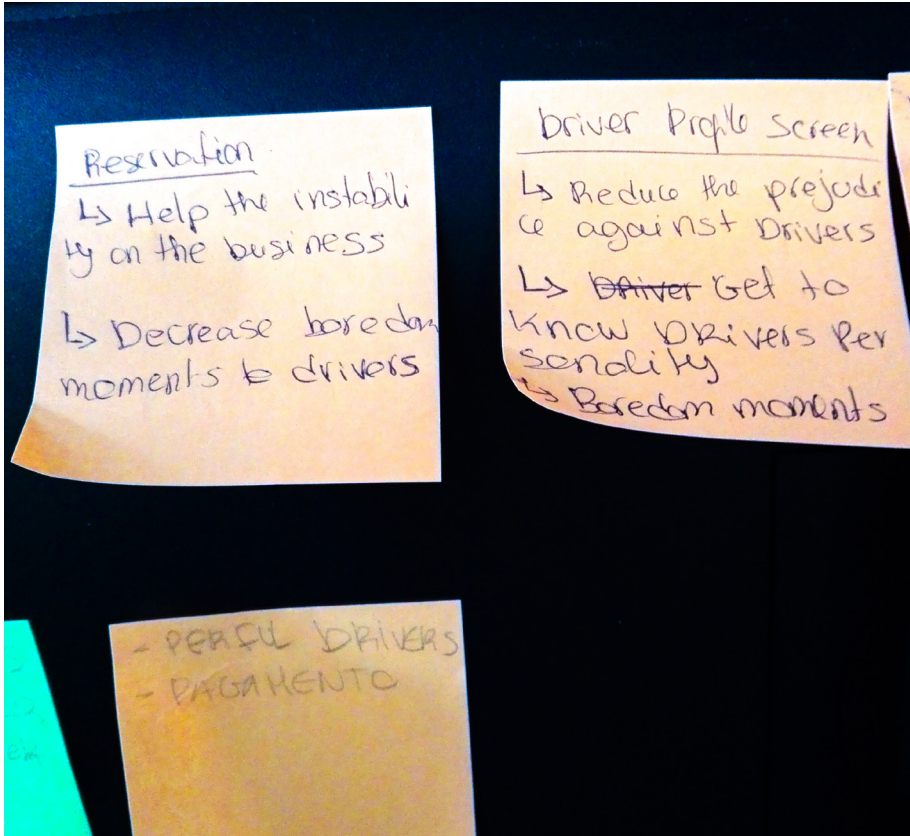 Reservation
↳ Help the instabili
ty on the business
↳ Decrease boredom
moments drivers
Driver Profile Screen
↳ Reduce the prejudi
ce against Drivers
↳ Driver Get to
Know Drivers Per
sonality
↳ Boredom moments
- PERFIL DRIVERS
- PAGAMENTO